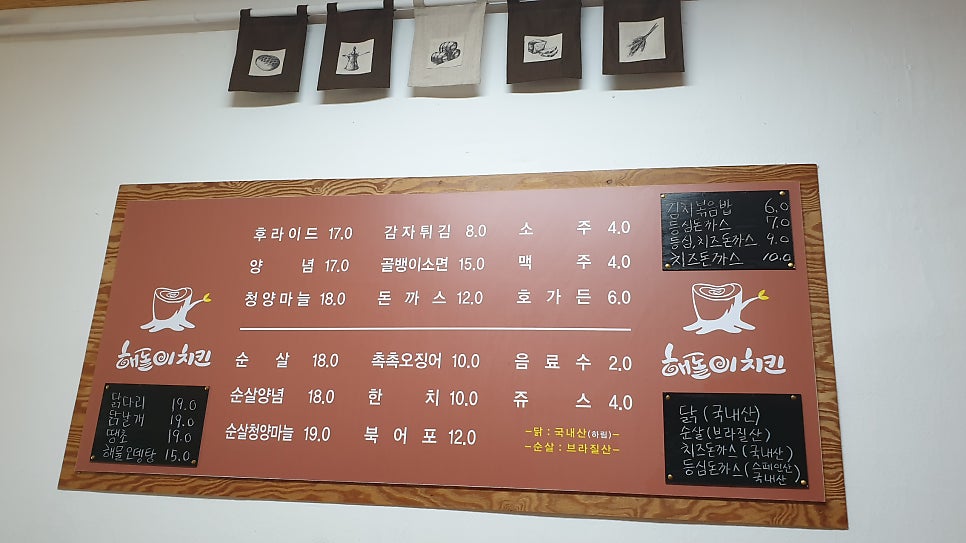 후라이드 17.0 감자튀김 8.0 소 주 4.0
양 념 17.0 골뱅이소면 15.0 맥 주 4.0
청양마늘 18.0 돈 까 스 12.0 호 가 든 6.0
순 살 18.0 촉촉오징어 10.0 음 료 수 2.0
순살양념 18.0 한 치 10.0 쥬 스 4.0
순살청양마늘 19.0 북 어 포 12.0
-닭 : 국내산(하림)-
-순살 : 브라질산-
김치볶음밥 6.0
등심돈까스 7.0
등심,치즈돈까스 9.0
치즈돈까스 10.0
해돌이치킨
해돌이치킨
닭다리 19.0
닭날개 19.0
땡초 19.0
해물오뎅탕 15.0
닭 (국내산)
순살(브라질산)
치즈돈까스 (국내산)
등심돈까스 (스페인산 국내산)